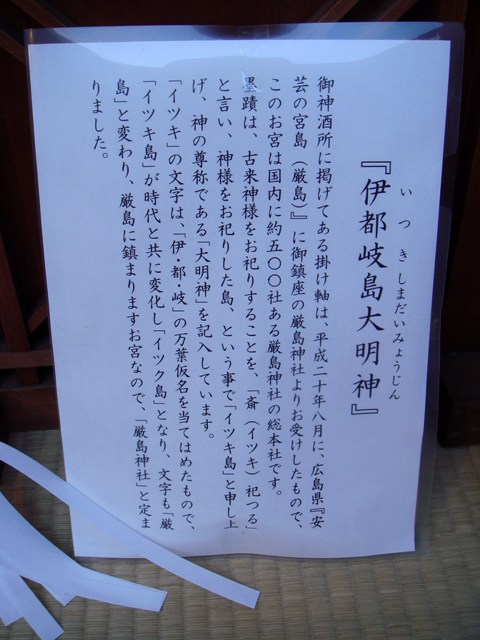 いつきしまだいみょうじん
『伊都岐島大明神』
御神酒所に掲げてある掛け軸は、平成二十年八月に、広島県『安
芸の宮島（厳島）』に御鎮座の厳島神社よりお受けしたもので、
このお宮は国内に約五〇〇社ある厳島神社の総本社です。
墨蹟は、古来神様をお祀りすることを、「斎（イツキ）祀つる」
と言い、神様をお祀りした島、という事で「イツキ島」と申し上
げ、神の尊称である「大明神」を記入しています。
「イツキ」の文字は、「伊・都・岐」の万葉仮名を当てはめたもので、
「イツキ島」が時代と共に変化し「イツク島」となり、文字も「厳
島」と変わり、厳島に鎮まりますお宮なので、「厳島神社」と定ま
りました。